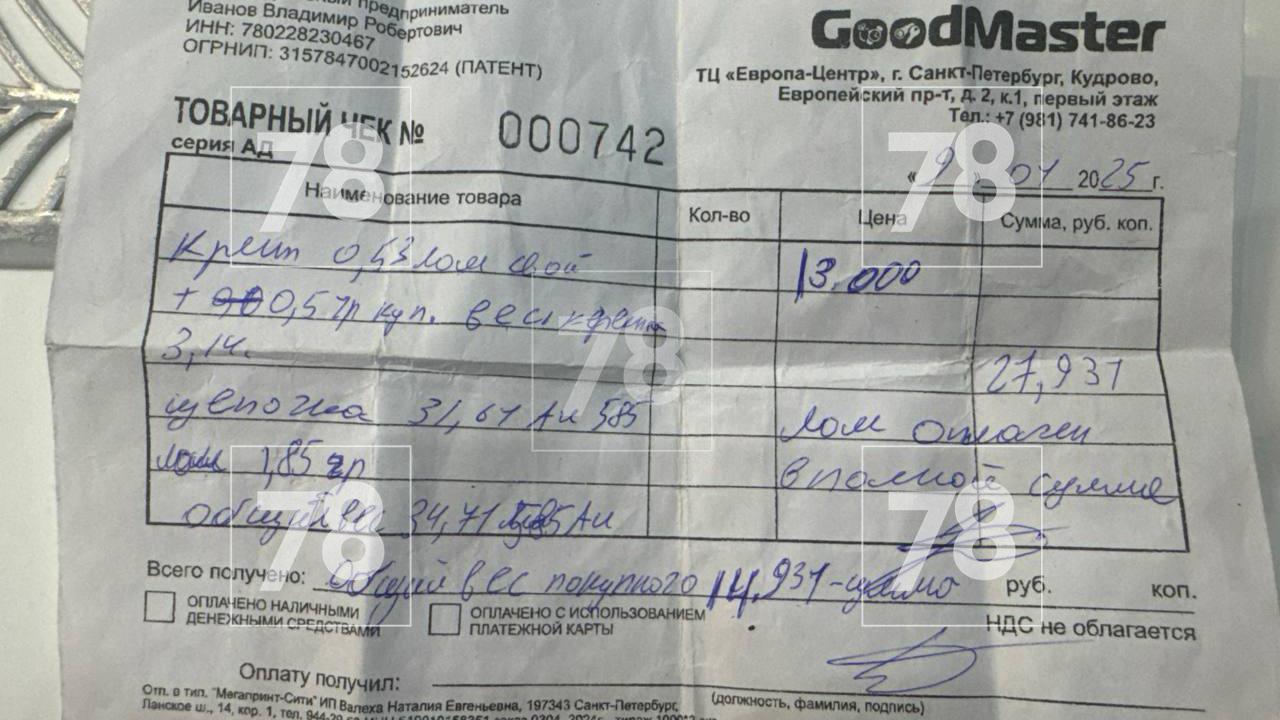 предприниматель
Иванов Владимир Робертович
ИНН: 780228230467
ОГРНИП: 315784700215​2624 (ПАТЕНТ)
GoodMaster
ТЦ «Европа-Центр», г. Санкт-Петербург, Кудрово,
Европейский пр-т, д. 2, к.1, первый этаж
Тел.: +7 (981) 741-86-23
ТОВАРНЫЙ ЧЕК № 000742
серия АД
« 9 » 01 2025 г.
Наименование товара Кол-во Цена Сумма, руб. коп.
лом свой 13.000
+ 0,5 гр куп. вес
3,14. 27,931
цепочка 31,61 Au 585 Лом оплачен
лом 1,85 гр в полной сумме
общий вес 34,71 585 Au
Всего получено: общий вес покупного 14,931 - руб. коп.
ОПЛАЧЕНО НАЛИЧНЫМИ ДЕНЕЖНЫМИ СРЕДСТВАМИ
ОПЛАЧЕНО С ИСПОЛЬЗОВАНИЕМ ПЛАТЕЖНОЙ КАРТЫ
НДС не облагается
Оплату получил:
(должность, фамилия, подпись)
Отп. в тип. "Мегапринт-Сити" ИП Валеха Наталия Евгеньевна, 197343 Санкт-Петербург,
Ланское ш., 14, кор. 1, тел.
78
78
78
78
78